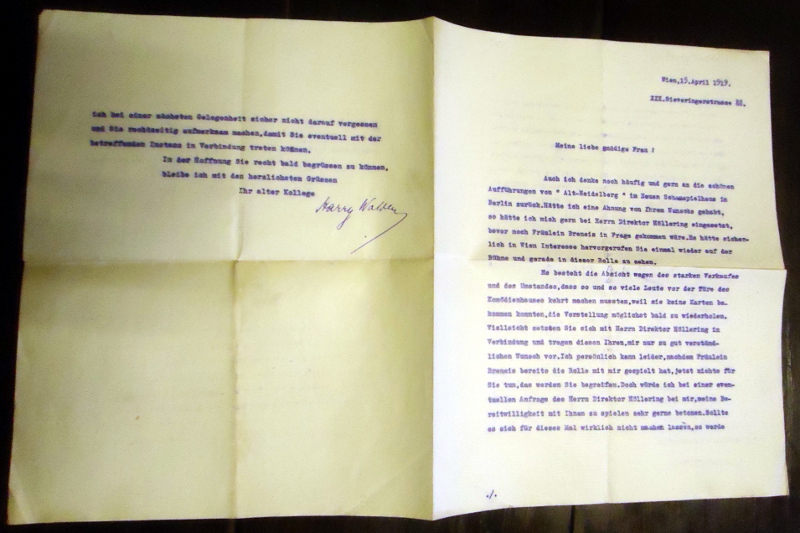 Wien, 15. April 1919.
XIX. Sieveringerstrasse 22.
Meine liebe gnädige Frau !
Auch ich denke noch häufig und gern an die schönen
Aufführungen von " Alt-Heidelberg " im Neuen Schauspielhaus in
Berlin zurück. Hätte ich eine Ahnung von Ihrem Wunsche gehabt,
so hätte ich mich gern bei Herrn Direktor Höllering eingesetzt,
bevor noch Fräulein Breneis in Frage gekommen wäre. Es hätte sicher-
lich in Wien Interesse hervorgerufen Sie einmal wieder auf der
Bühne und gerade in dieser Rolle zu sehen.
Es besteht die Absicht wegen des starken Verkaufes
und des Umstandes, dass so und so viele Leute vor der Türe des
Komödienhauses kehrt machen mussten, weil sie keine Karten be-
kommen konnten, die Vorstellung möglichst bald zu wiederholen.
Vielleicht setzten Sie sich mit Herrn Direktor Höllering in
Verbindung und tragen diesen Ihren, mir nur zu gut verständ-
lichen Wunsch vor. Ich persönlich kann leider, nachdem Fräulein
Breneis bereits die Rolle mit mir gespielt hat, jetzt nichts für
Sie tun, das werden Sie begreifen. Doch würde ich bei einer even-
tuellen Anfrage des Herrn Direktor Höllering bei mir, meine Be-
reitwilligkeit mit Ihnen zu spielen sehr gerne betonen. Sollte
es sich für dieses Mal wirklich nicht machen lassen, so werde
./.
ich bei einer nächsten Gelegenheit sicher nicht darauf vergessen
und Sie rechtzeitig aufmerksam machen, damit Sie eventuell mit der
betreffenden Instanz in Verbindung treten können.
In der Hoffnung Sie recht bald begrüssen zu können,
bleibe ich mit den herzlichsten Grüssen
Ihr alter Kollege
Harry Walden